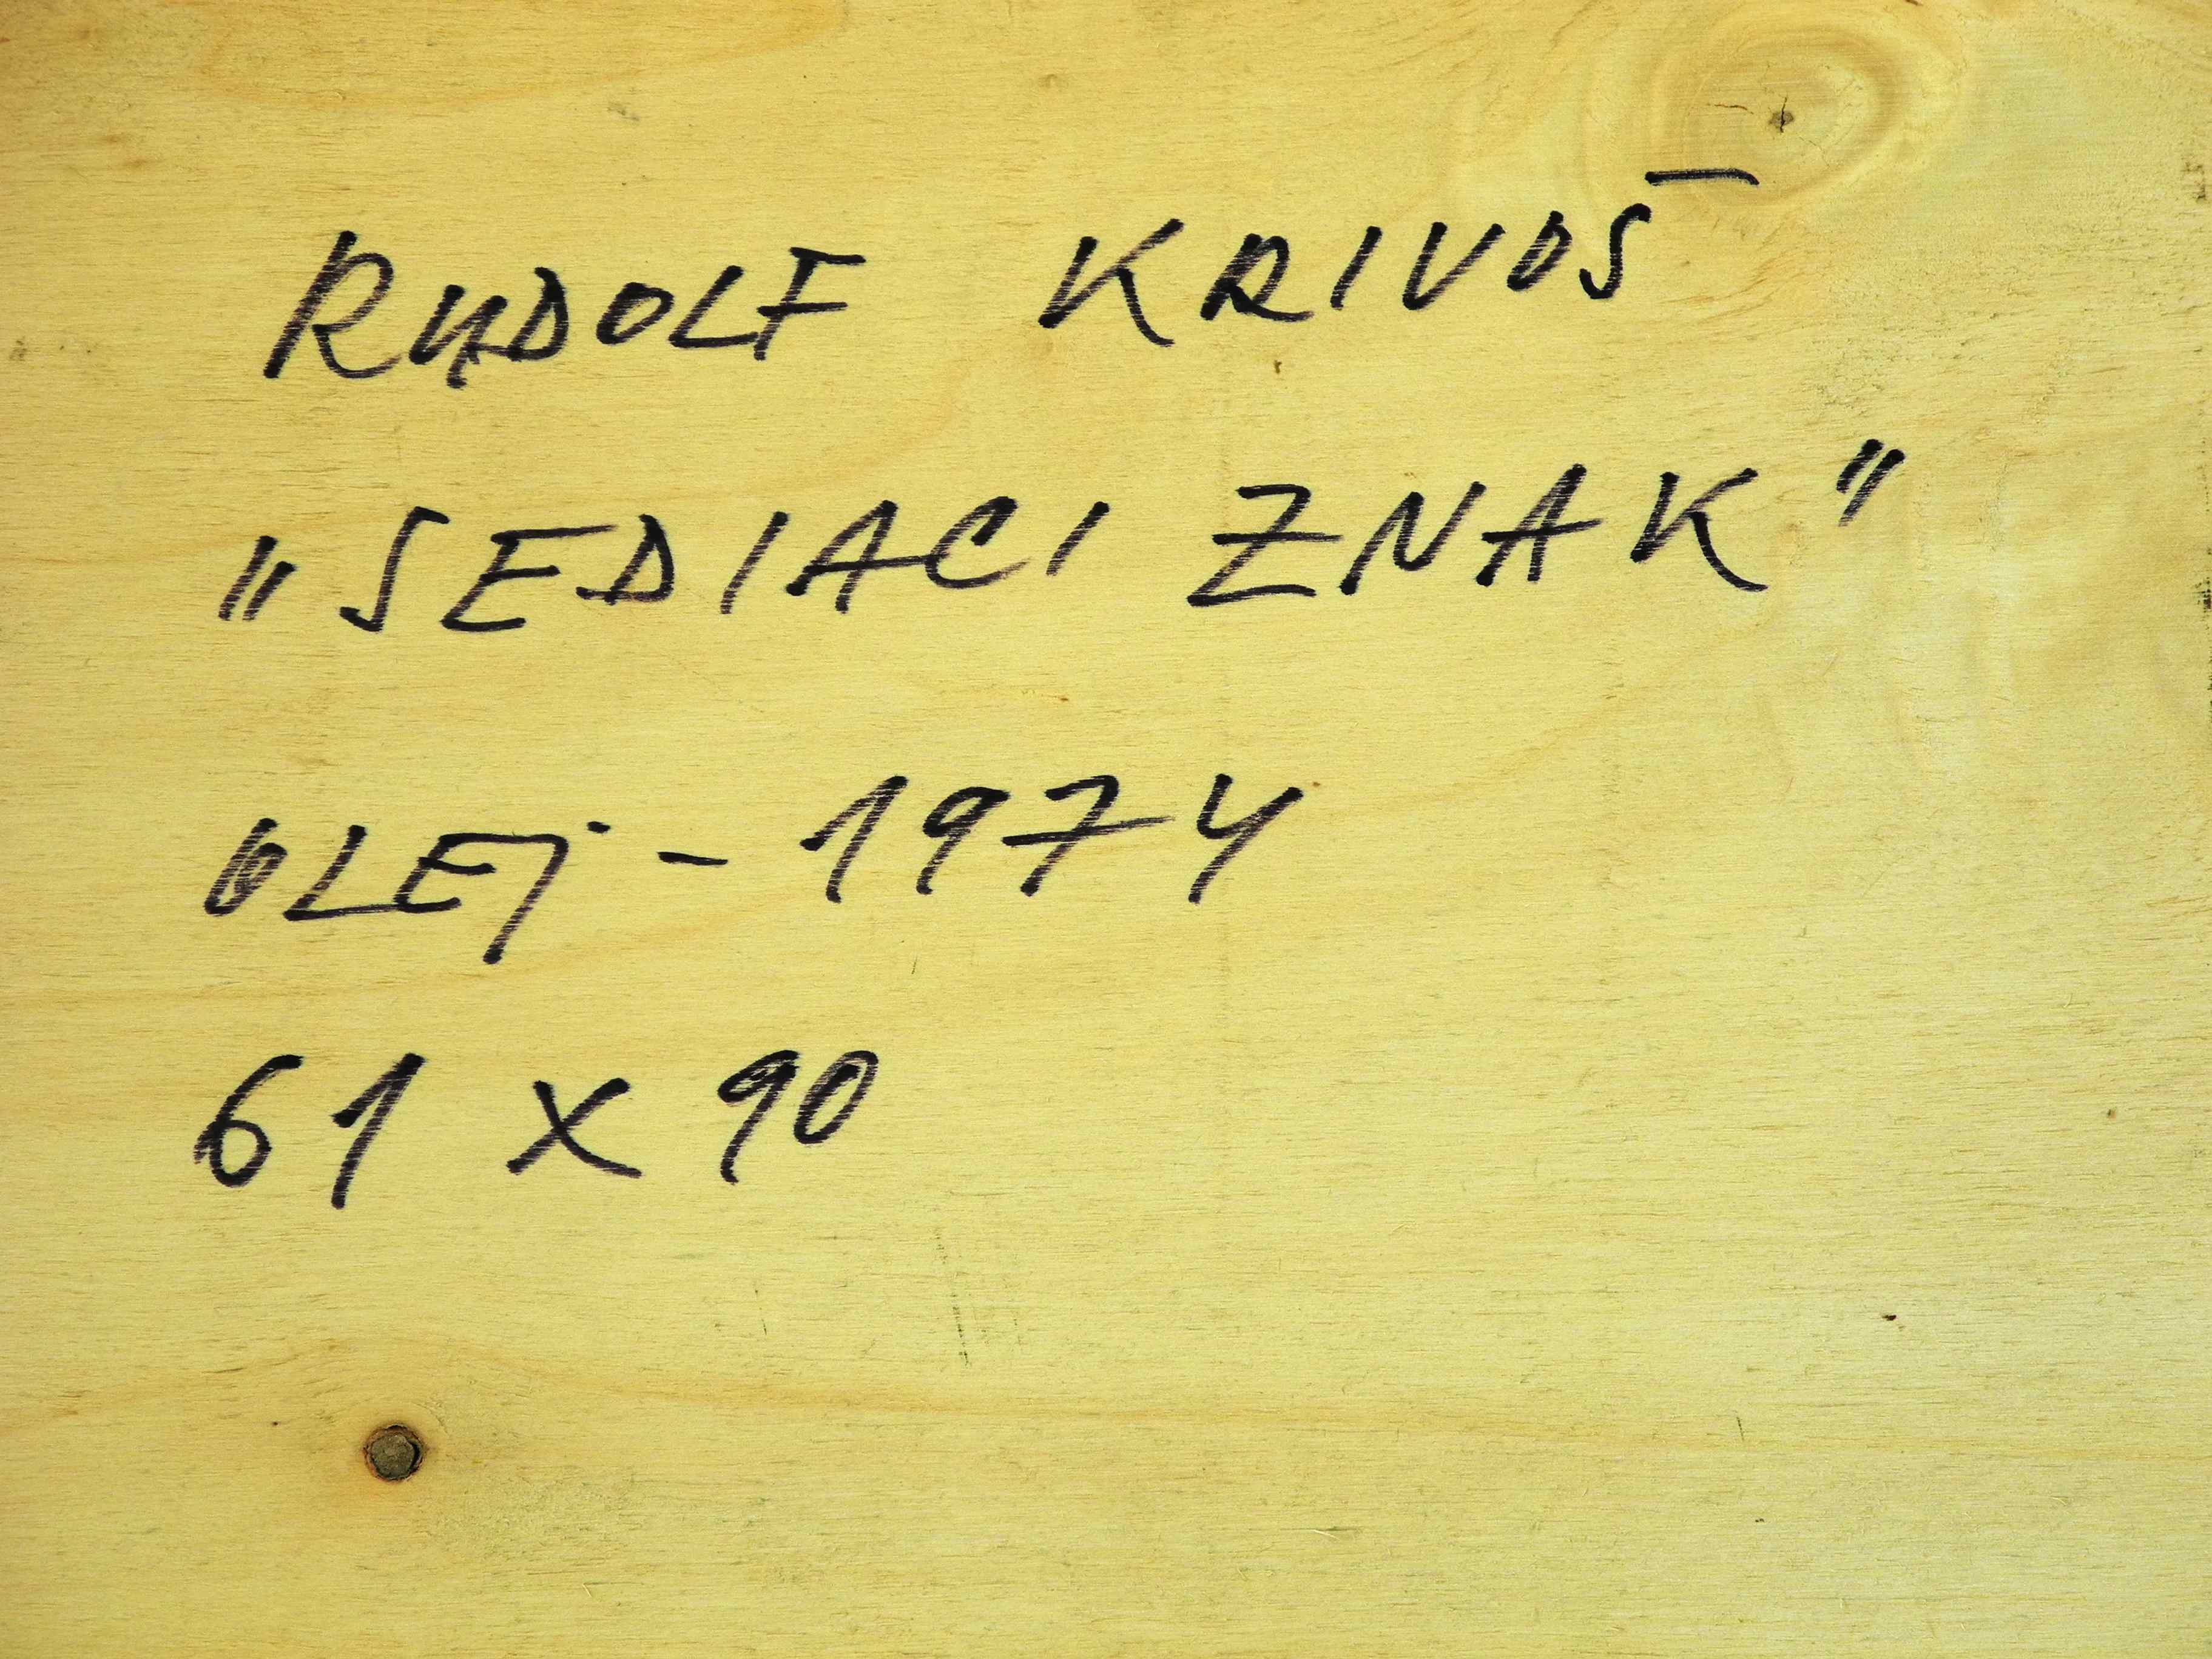 RUDOLF KRIVOŠ
"SEDIACI ZNAK"
OLEJ - 1974
61 x 90